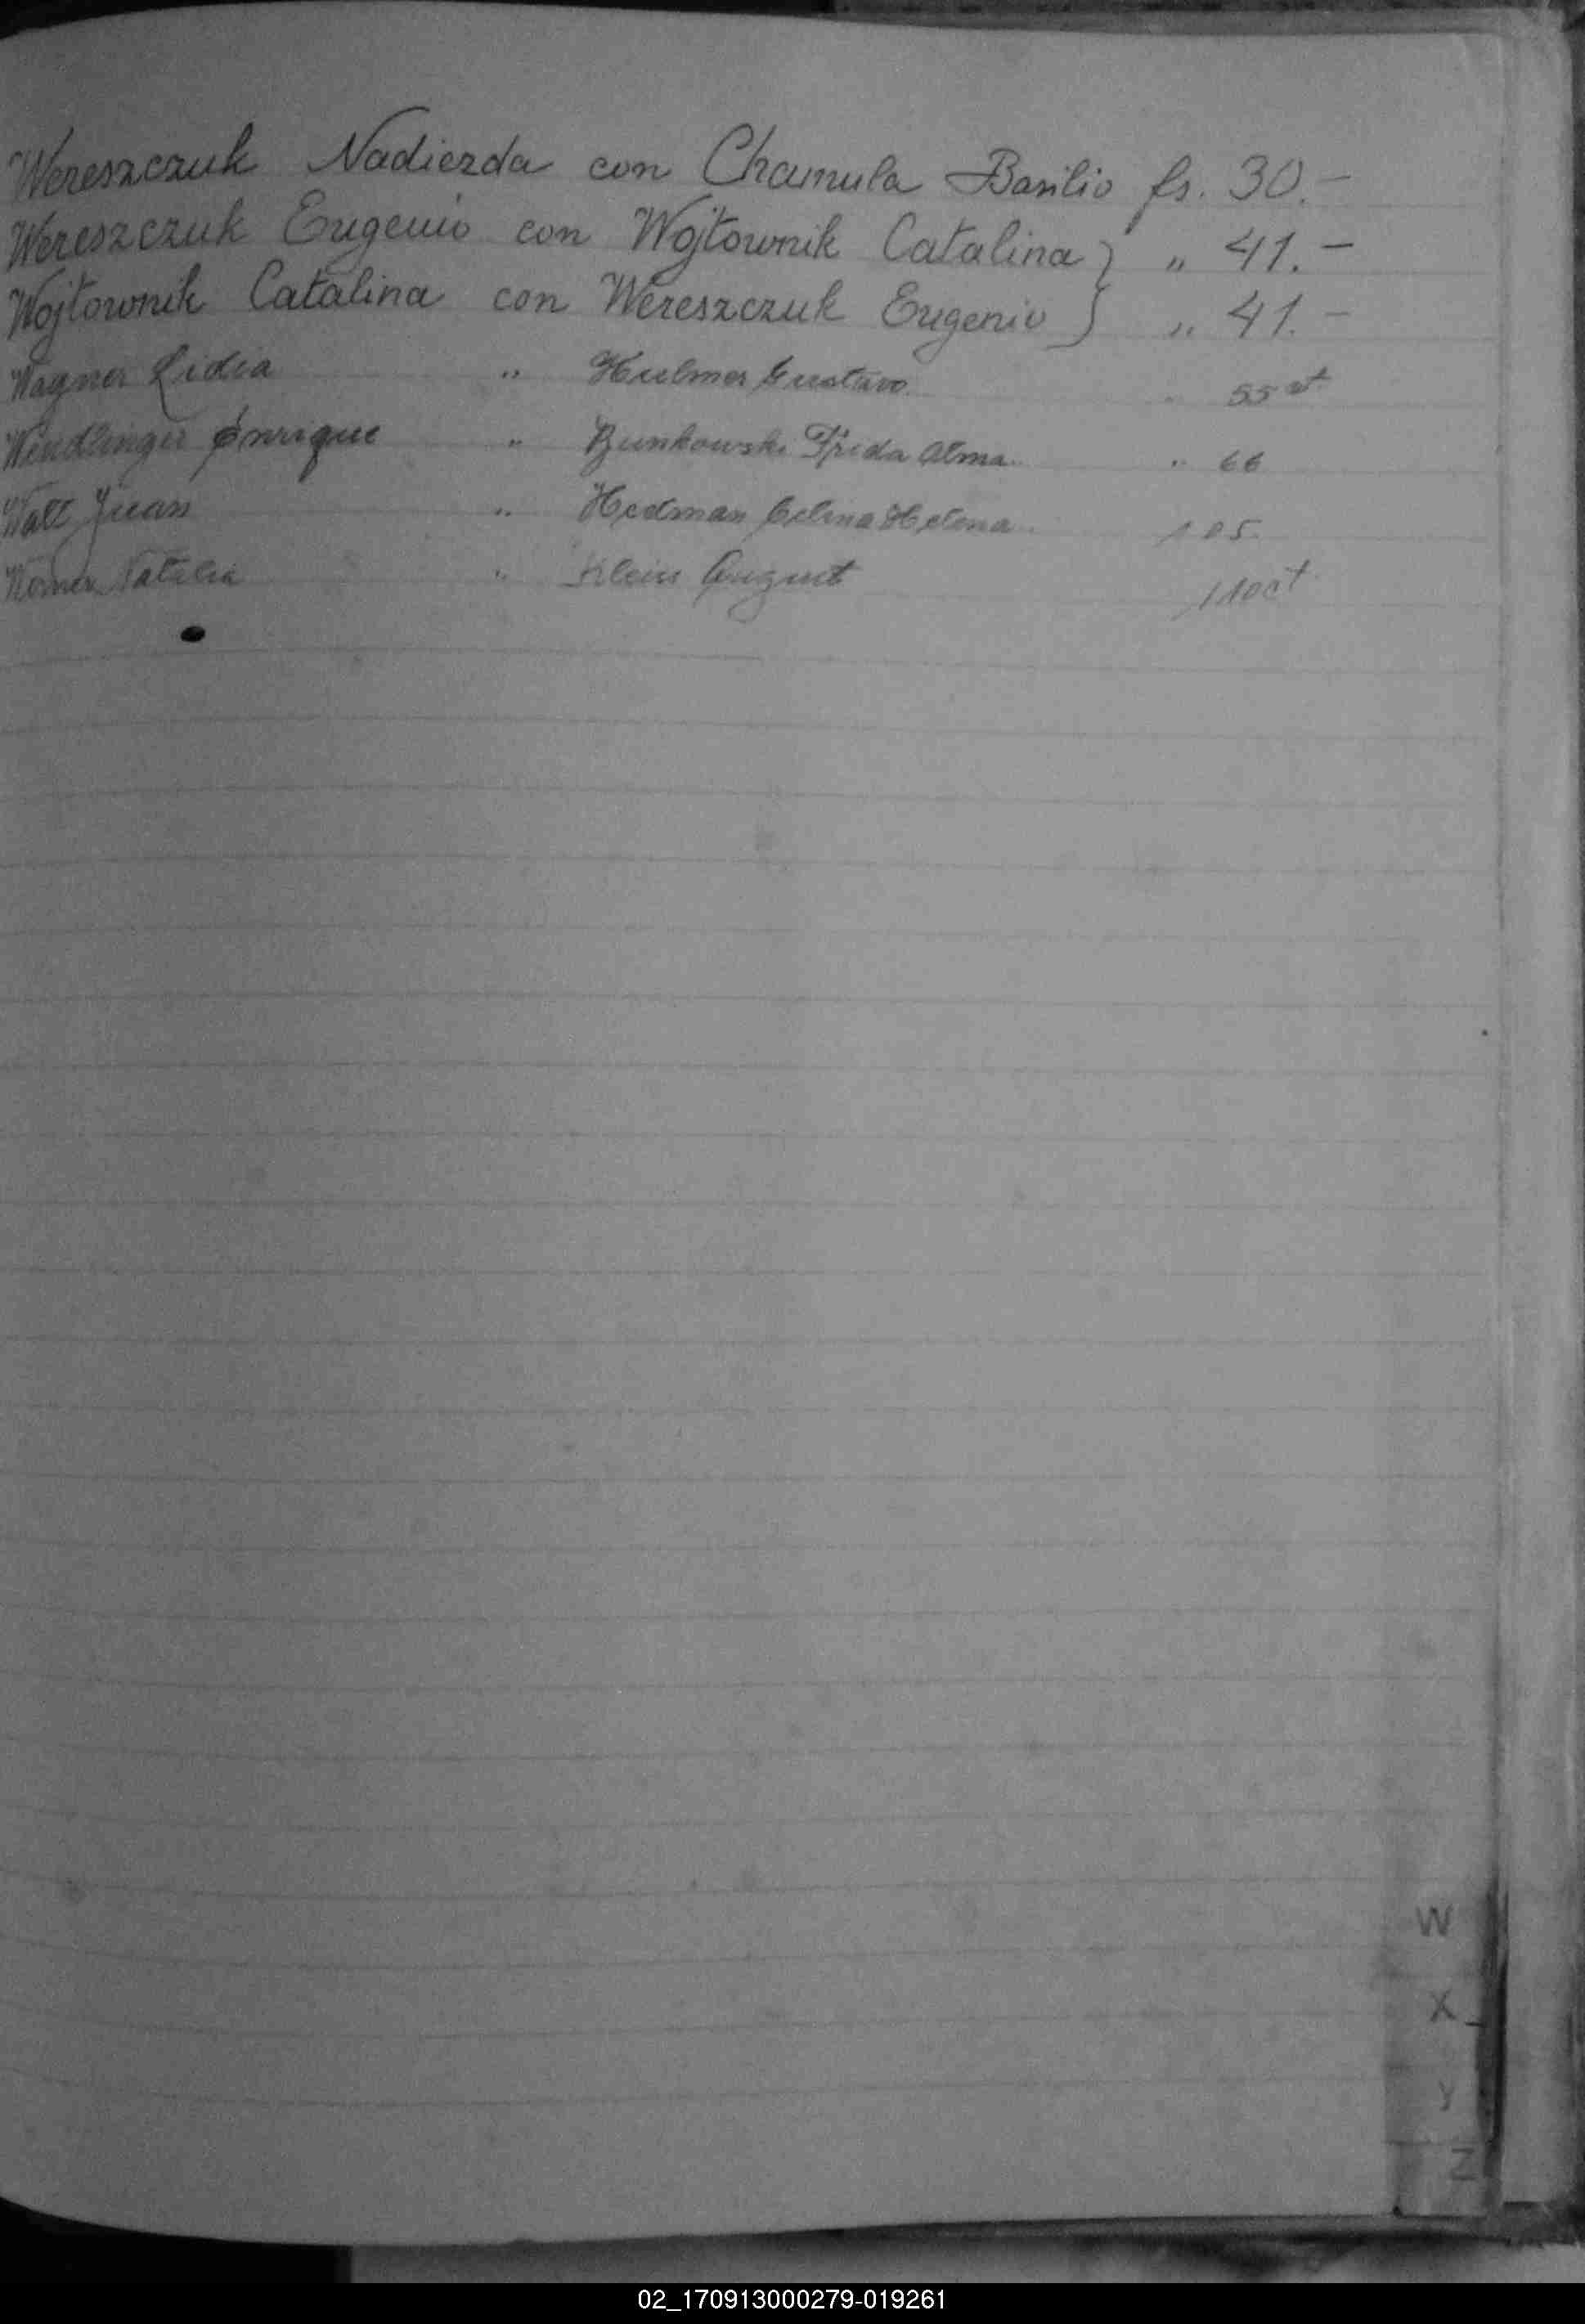 Wereszczuk Nadiezda con Chamula Basilio fs. 30.-
Wereszczuk Eugenio con Wojtownik Catalina } " 41.-
Wojtownik Catalina con Wereszczuk Eugenio } " 41.-
Wagner Lidia " Hulmer Gustavo " 55 vt
Wendlinger Enrique " Bunkowski Frida Alma " 66
Watt Juan " Hedman Celina Helena 105
Natalia " Klein August 110 vt
W
X
Y
Z
02_170913000279-019261